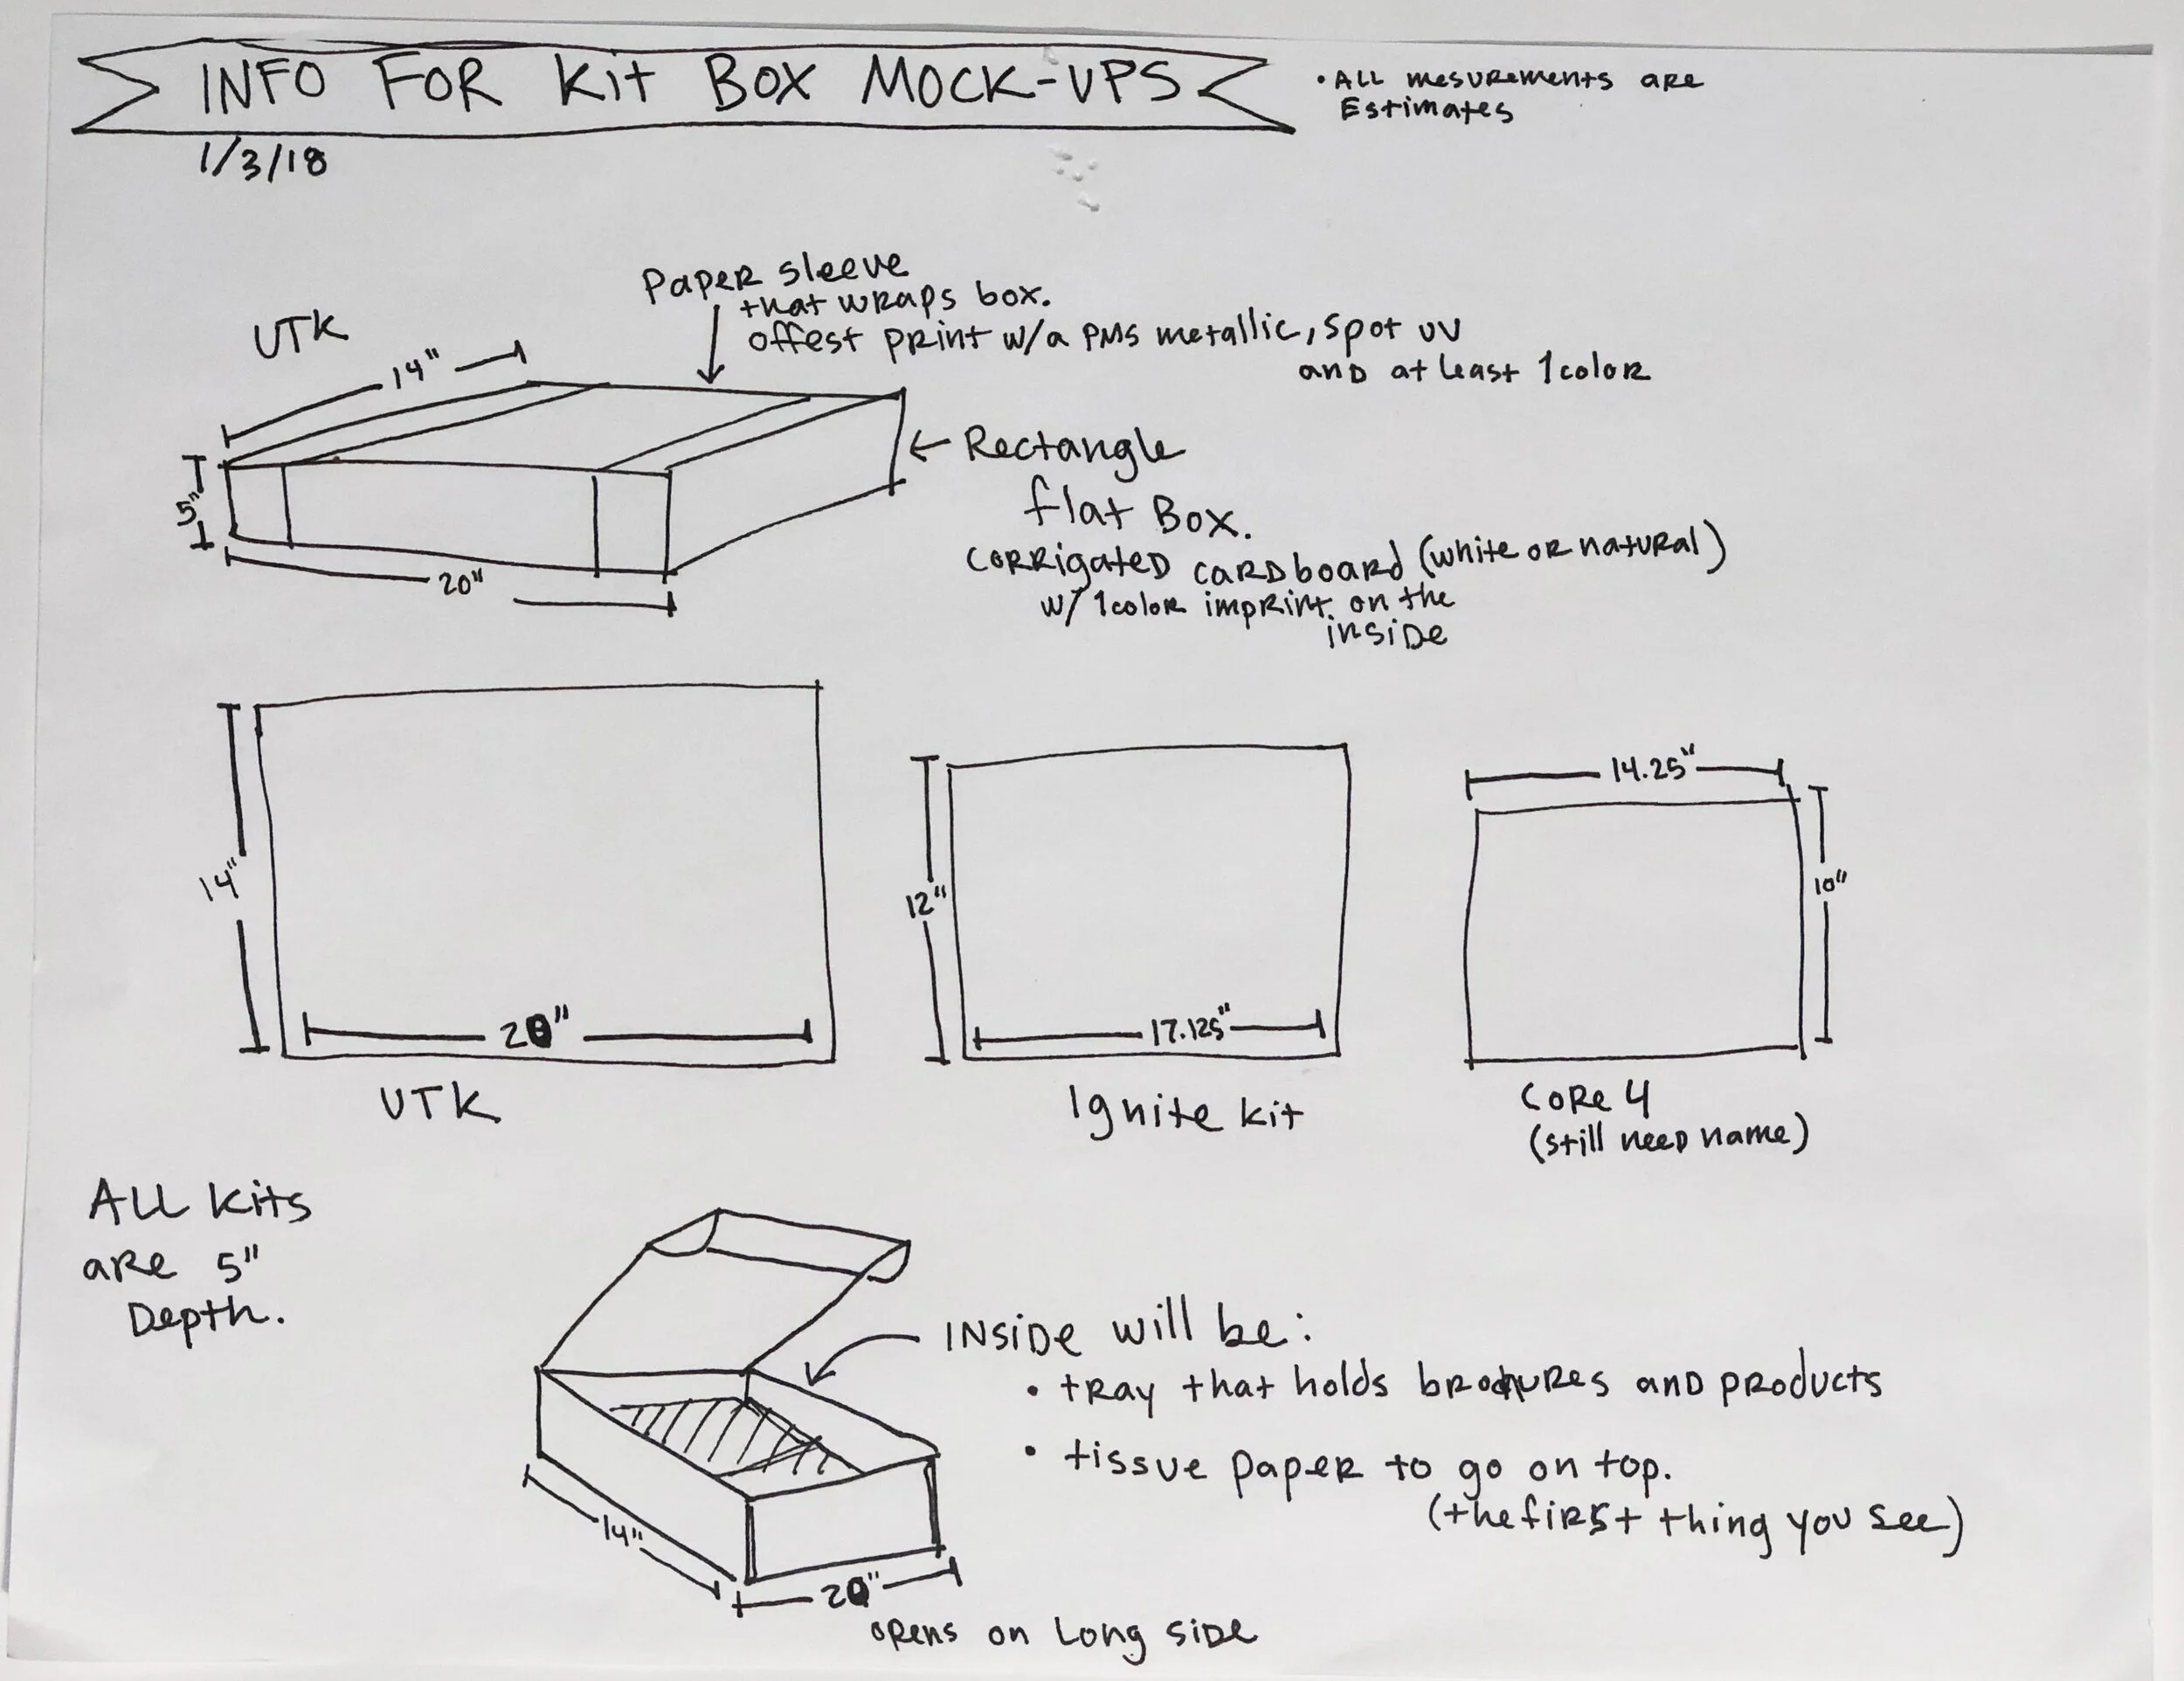 INFO FOR Kit BOX MOCK-UPS
• ALL mesurements are
Estimates
1/3/18
Paper sleeve
that wraps box.
offest print w/a PMS metallic, spot uv
and at least 1color
UTK
14"
5"
20"
← Rectangle
flat Box.
corrigated cardboard (white or natural)
w/ 1color imprint on the
inside
14"
20"
UTK
12"
17.125"
Ignite kit
14.25"
10"
core 4
(still need name)
ALL kits
are 5"
Depth.
INside will be:
• tray that holds brochures and products
• tissue paper to go on top.
(the first thing you see)
14"
20"
opens on Long side